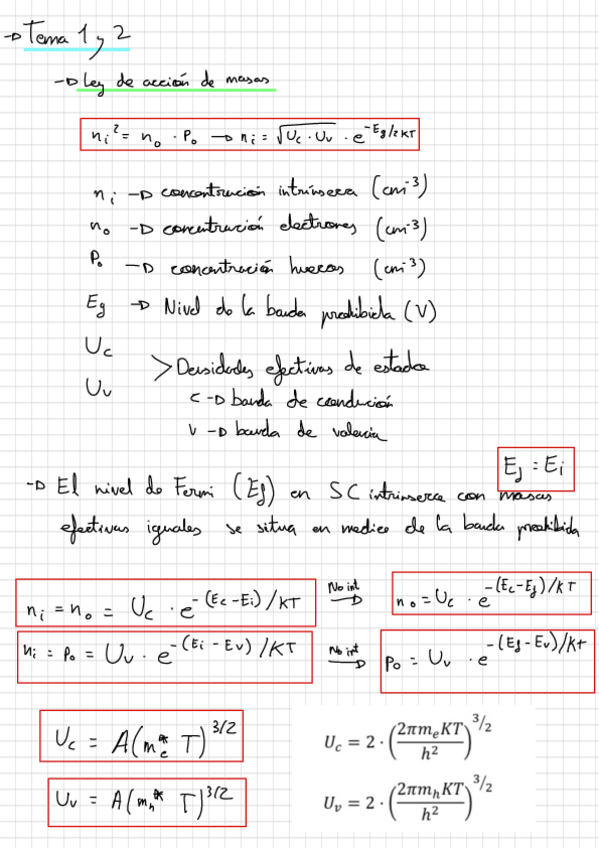 → Tema 1 y 2
→ Ley de acción de masas
nᵢ² = n₀ · P₀ → nᵢ = √(Uc · Uv) · e^(-Eg/2KT)
nᵢ → concentración intrínseca (cm⁻³)
n₀ → concentración electrones (cm⁻³)
P₀ → concentración huecos (cm⁻³)
Eg → Nivel de la banda prohibida (V)
Uc
Uv
> Densidades efectivas de estados
c → banda de conducción
v → banda de valencia
Ef = Ei
→ El nivel de Fermi (Ef) en SC intrínseca con masas
efectivas iguales se situa en medio de la banda prohibida
nᵢ = n₀ = Uc · e^(-(Ec-Ei)/KT) No int → n₀ = Uc · e^(-(Ec-Ef)/KT)
nᵢ = P₀ = Uv · e^(-(Ei-Ev)/KT) No int → P₀ = Uv · e^(-(Ef-Ev)/Kt)
Uc = A(me* T)^3/2
Uv = A(mh* T)^3/2
Uc = 2 · (2πmₑKT/h²)^3/2
Uv = 2 · (2πmₕKT/h²)^3/2